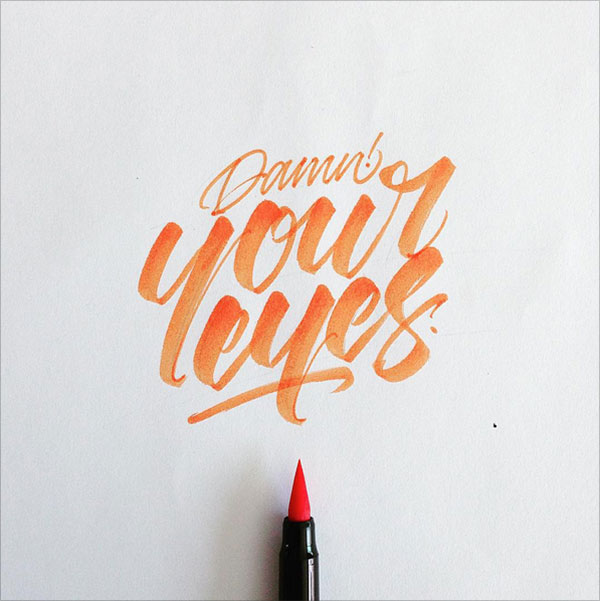 Damn!
your
eyes.